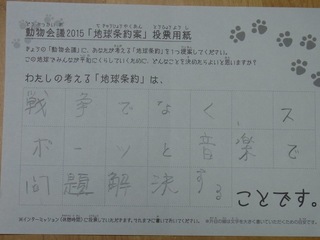 動物会議2015「地球条約案」投票用紙
きょうの「動物会議」に、あなたが考える「地球条約」を1つ提案してください。
この地球でみんなが平和にくらしていくために、どんなことを決めたらよいと思いますか?
わたしの考える「地球条約」は、
戦争でなく、ス
ポーツと音楽で
問題解決する
ことです。